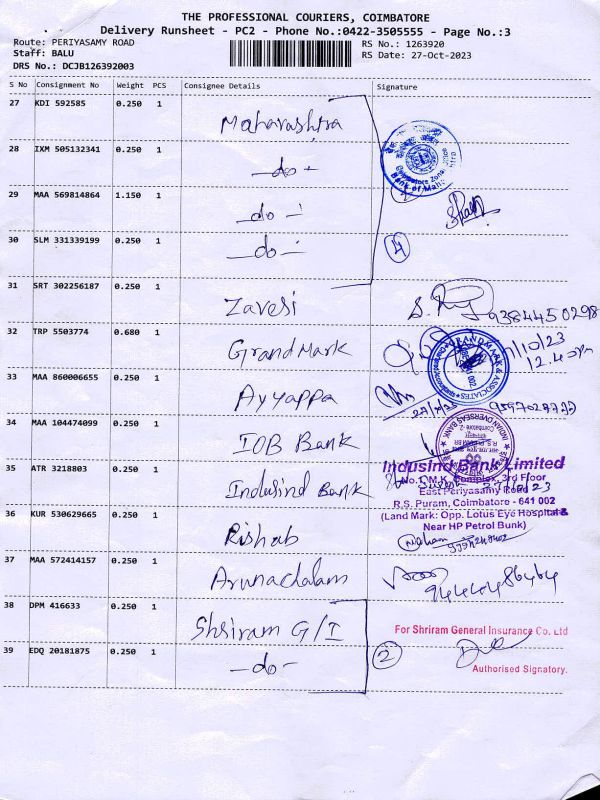 THE PROFESSIONAL COURIERS, COIMBATORE
Delivery Runsheet - PC2 - Phone No.:0422-3505555 - Page No.:3
Route: PERIYASAMY ROAD RS No.: 1263920
Staff: BALU RS Date: 27-Oct-2023
DRS No.: DCJB126392003
S No Consignment No Weight PCS Consignee Details Signature
27 KDI 592585 0.250 1 Maharashtra
28 IXM 505132341 0.250 1 -do-
Coimbatore Zonal Office
Bank of Mah
29 MAA 569814864 1.150 1 -do-
30 SLM 331339199 0.250 1 -do- 4
31 SRT 302256187 0.250 1 Zaveri 9384450298
32 TRP 5503774 0.680 1 GrandMark
GRANDMARK & ASSOCIATES
12.40pm
33 MAA 860006655 0.250 1 Ayyappa
34 MAA 104474099 0.250 1 IOB Bank
INDIAN OVERSEAS BANK
35 ATR 3218803 0.250 1 Indusind Bank
Indusind Bank Limited
No.1, M.K. Complex, 3rd Floor
East Periyasamy Road
R.S. Puram, Coimbatore - 641 002
(Land Mark: Opp. Lotus Eye Hospital &
Near HP Petrol Bunk)
36 KUR 530629665 0.250 1 Rishab
37 MAA 572414157 0.250 1 Arunachalam
38 DPM 416633 0.250 1 Shriram G/I
For Shriram General Insurance Co. Ltd
39 EDQ 20181875 0.250 1 -do- 2
Authorised Signatory.